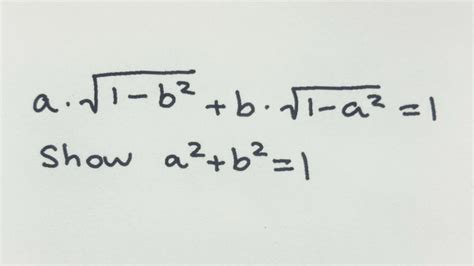 a · √1-b² + b · √1-a² = 1
Show a²+b²=1